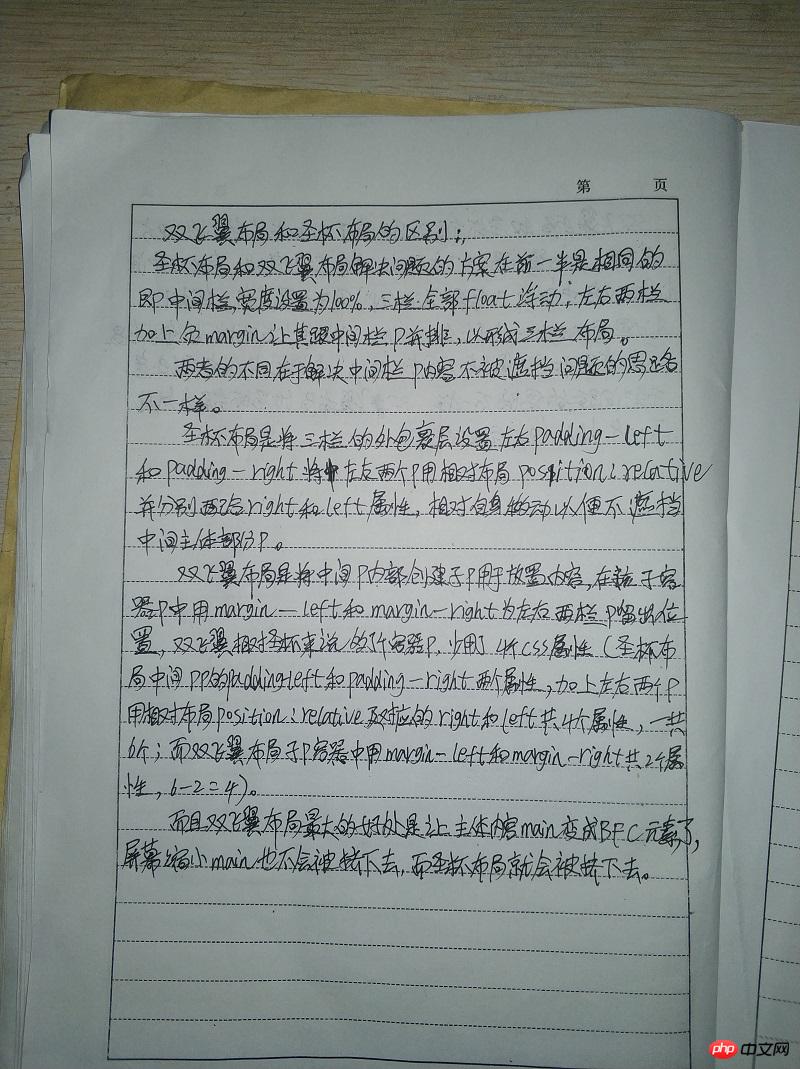 第 页
双飞翼布局和圣杯布局的区别:
圣杯布局和双飞翼布局解决问题的方案在前一半是相同的
即中间栏宽度设置为100%,三栏全部float浮动;左右两栏
加上负margin让其跟中间栏P并排,以形成三栏布局。
两者的不同在于解决中间栏P内容不被遮挡问题的思路
不一样。
圣杯布局是将三栏的外包裹层设置左右padding-left
和padding-right将左右两个P用相对布局position:relative
并分别配合right和left属性,相对自身移动以便不遮挡
中间主体部分P。
双飞翼布局是将中间P内部创建子P用于放置内容,在该子容
器P中用margin-left和margin-right为左右两栏P留出位
置,双飞翼相对圣杯来说的1个容器P,少用了4个css属性(圣杯布
局中间PP的padding-left和padding-right两个属性,加上左右两个P
用相对布局position:relative及对应的right和left共4个属性,一共
6个;而双飞翼布局子P容器中用margin-left和margin-right共2个属
性,6-2=4)。
而且双飞翼布局最大的好处是让主体内容main变成BFC元素了,
屏幕缩小main也不会被挤下去,而圣杯布局就会被挤下去。
php中文网